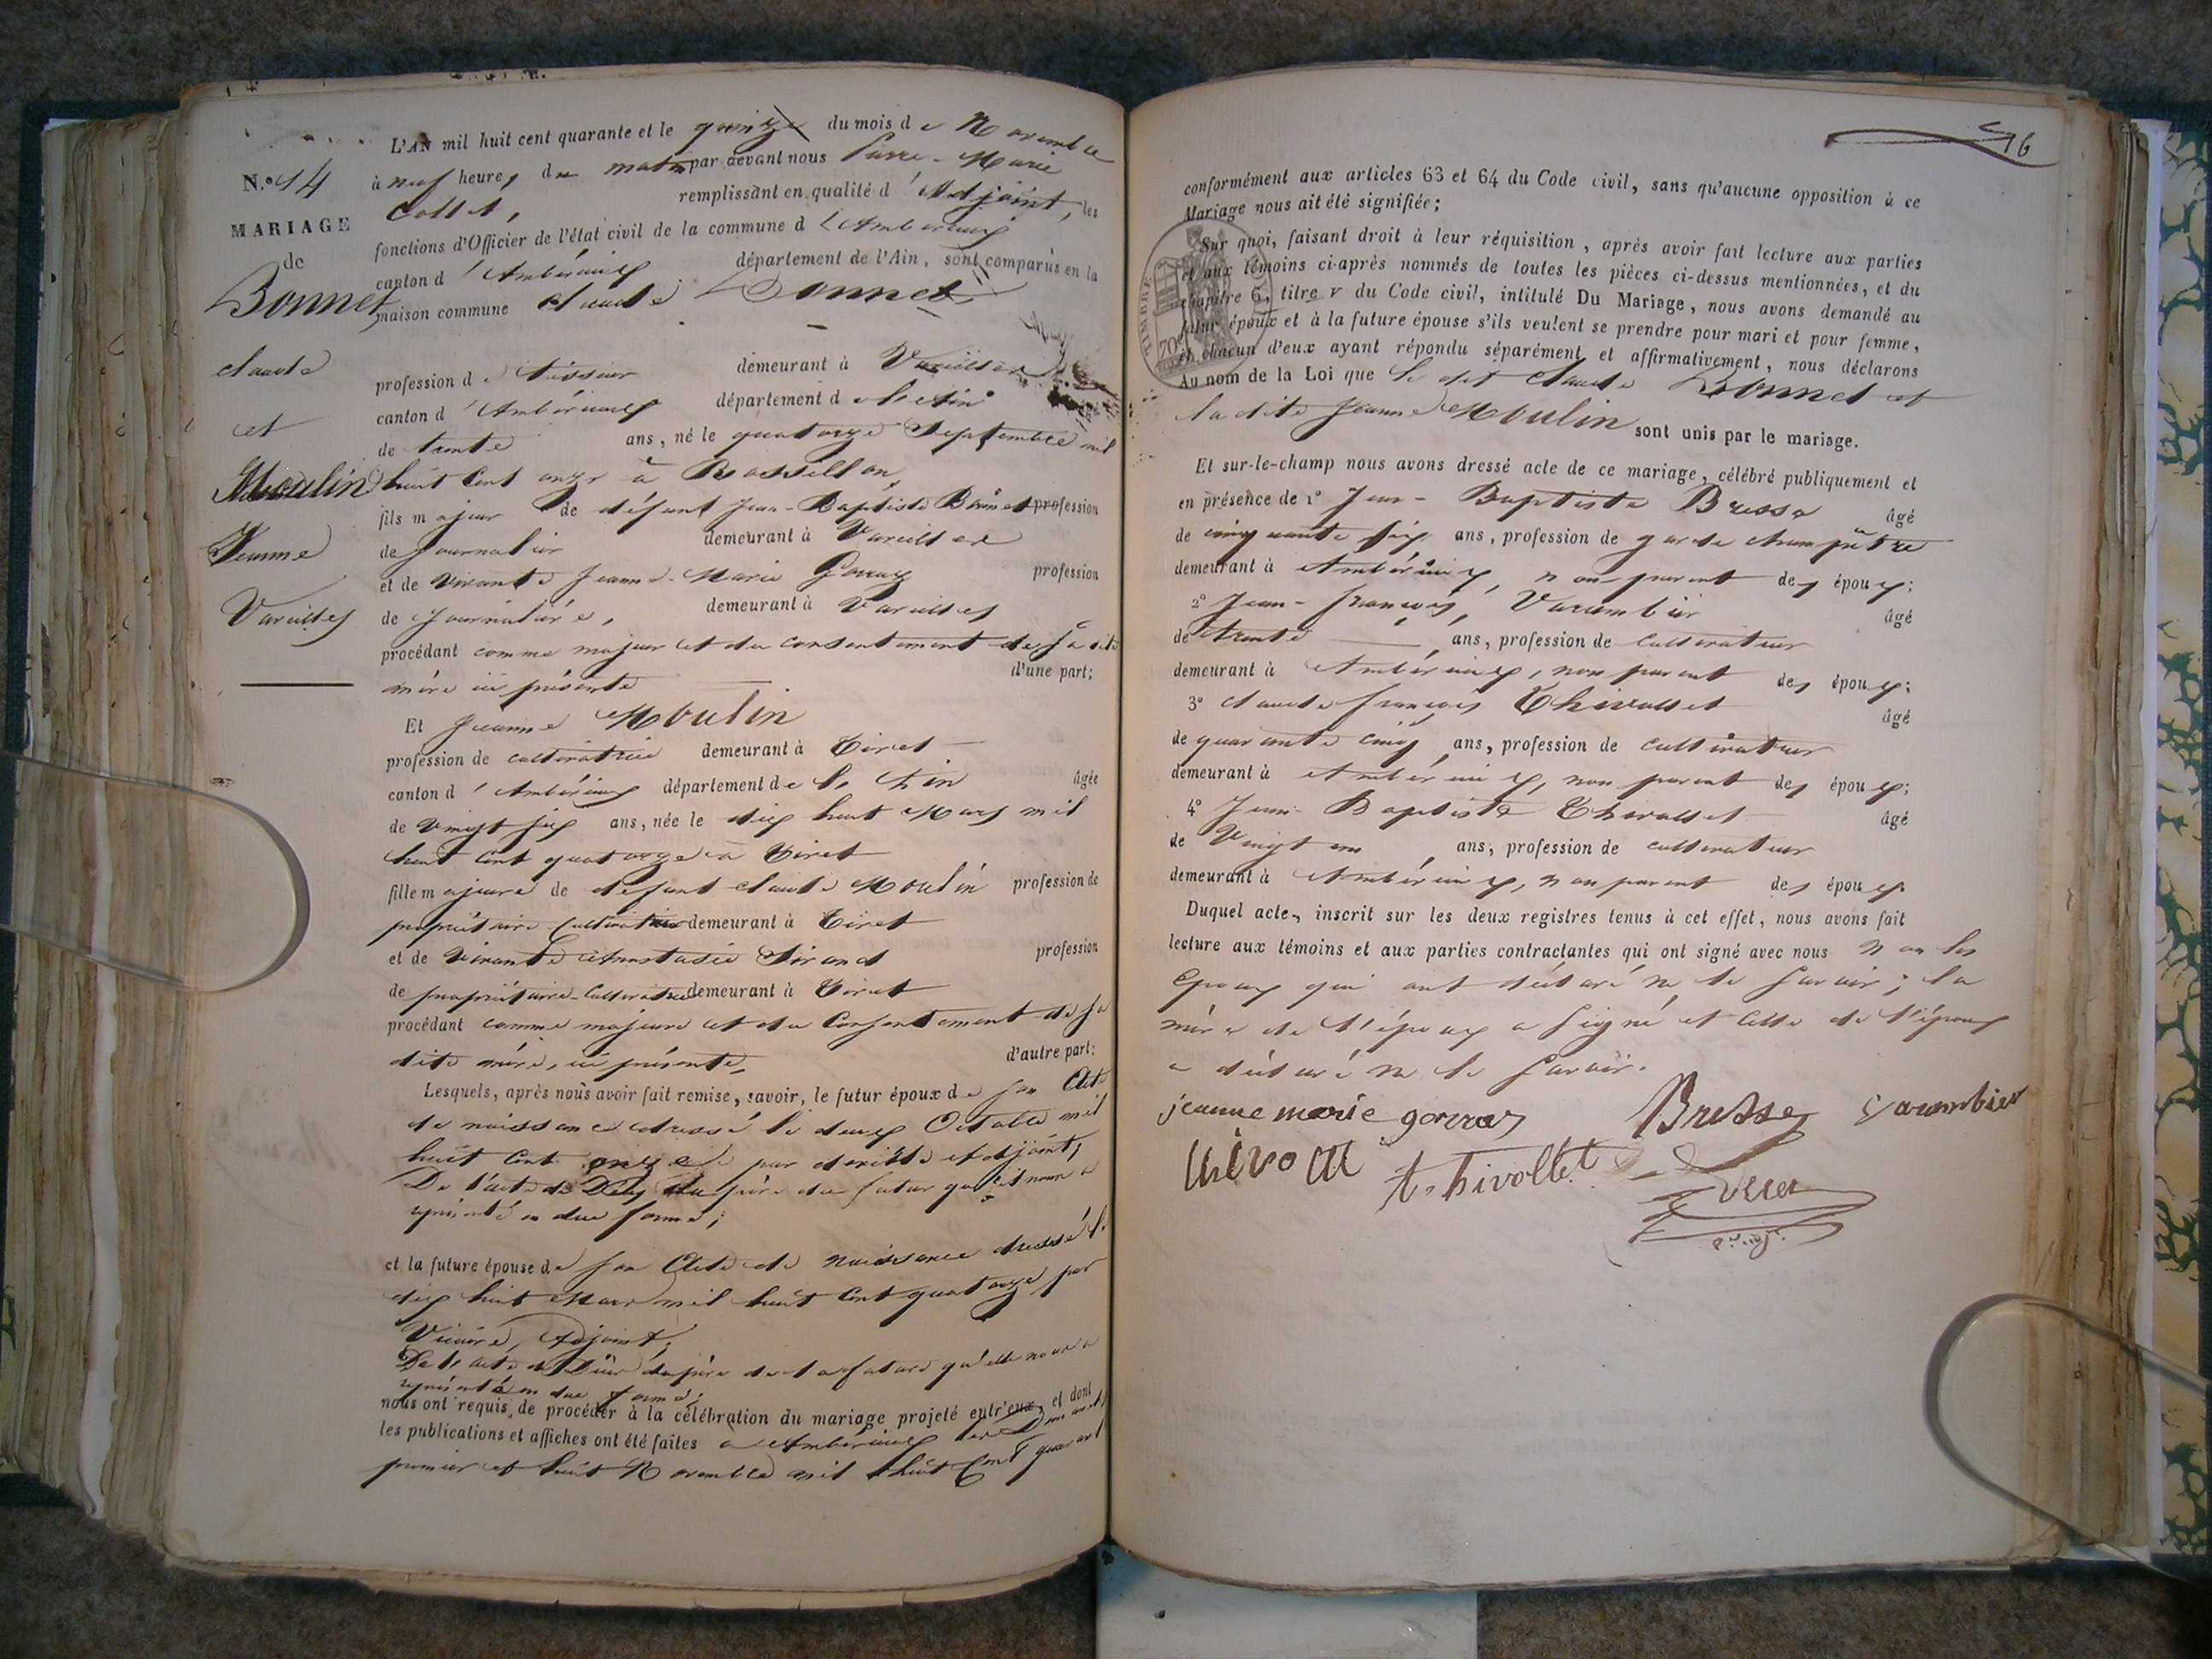 N.º 14
MARIAGE
de
Bonnet
claude
et
Moulin
Jeanne
Vareilles
L'AN mil huit cent quarante et le quinze du mois de Novembre
à neuf heures du matin par devant nous Marie
Collet, remplissant en qualité d'Adjoint, les
fonctions d'Officier de l'état civil de la commune d'Ambérieux
canton d'Ambérieux département de l'Ain, sont comparus en la
maison commune claude Bonnet
profession de tissier demeurant à Vareilles
canton d'Ambérieux département de l'Ain
de trente ans, né le quatorze Septembre mil
huit cent onze à Rossillon,
fils majeur de défunt Jean-Baptiste Bonnet profession
de Journalier demeurant à Vareilles
et de vivante Jeanne-Marie Gorraz profession
de Journalière, demeurant à Vareilles
procédant comme majeur et du consentement de sa dite
mère ici présente d'une part;
Et Jeanne Moulin
profession de cultivatrice demeurant à Tiret
canton d'Ambérieux département de l'Ain âgée
de vingt six ans, née le dix huit Mars mil
huit cent quatorze à Tiret
fille majeure de défunt claude Moulin profession de
propriétaire cultivateur demeurant à Tiret
et de vivante Anastasie Sirand profession
de propriétaire-cultivatrice demeurant à Tiret
procédant comme majeure et du consentement de sa
dite mère, ici présente, d'autre part:
Lesquels, après nous avoir fait remise, savoir, le futur époux de son Acte
de naissance dressé le deux Octobre mil
huit cent onze par adjoint,
De l'acte de Décès du père du futur qu'il nous a
représenté en due forme;
et la future épouse de son Acte de naissance dressé le
dix huit Mars mil huit cent quatorze par
Adjoint,
De l'acte de Décès du père de la future qu'elle nous a
représenté en due forme,
nous ont requis de procéder à la célébration du mariage projeté entr'eux, et dont
les publications et affiches ont été faites à Ambérieux les Dimanches
premier et huit Novembre mil huit Cent quarante
16
conformément aux articles 63 et 64 du Code civil, sans qu'aucune opposition à ce
Mariage nous ait été signifiée;
Sur quoi, faisant droit à leur réquisition, après avoir fait lecture aux parties
et aux témoins ci-après nommés de toutes les pièces ci-dessus mentionnées, et du
chapitre 6, titre v du Code civil, intitulé Du Mariage, nous avons demandé au
futur époux et à la future épouse s'ils veulent se prendre pour mari et pour femme,
et chacun d'eux ayant répondu séparément et affirmativement, nous déclarons
Au nom de la Loi que le dit claude Bonnet et
la dite Jeanne Moulin sont unis par le mariage.
TIMBRE
70
Et sur-le-champ nous avons dressé acte de ce mariage, célébré publiquement et
en présence de 1º Jean-Baptiste Bresse âgé
de cinquante six ans, profession de garde champêtre
demeurant à Ambérieux, non parent des époux;
2º Jean-François, Varambier âgé
de trente ans, profession de cultivateur
demeurant à Ambérieux, non parent des époux;
3º claude François Thivollet âgé
de quarante cinq ans, profession de cultivateur
demeurant à Ambérieux, non parent des époux;
4º Jean-Baptiste Thivollet âgé
de Vingt un ans, profession de cultivateur
demeurant à Ambérieux, non parent des époux.
Duquel acte, inscrit sur les deux registres tenus à cet effet, nous avons fait
lecture aux témoins et aux parties contractantes qui ont signé avec nous non les
époux qui ont déclaré ne le savoir; la
mère de l'époux a signé et celle de l'épouse
a déclaré ne le savoir.
jeanne marie gorraz Bresse Varambier
thivollet